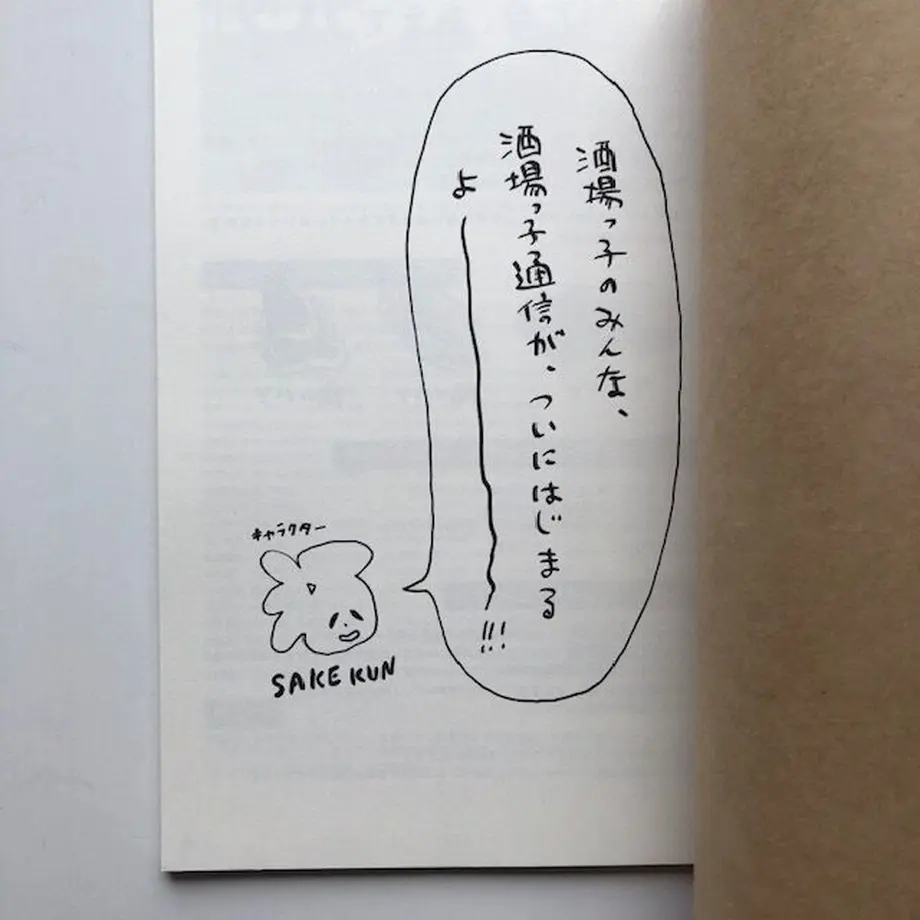 酒場っ子のみんな、
酒場っ子通信が、ついにはじまる
よー!!!
キャラクター
SAKE KUN